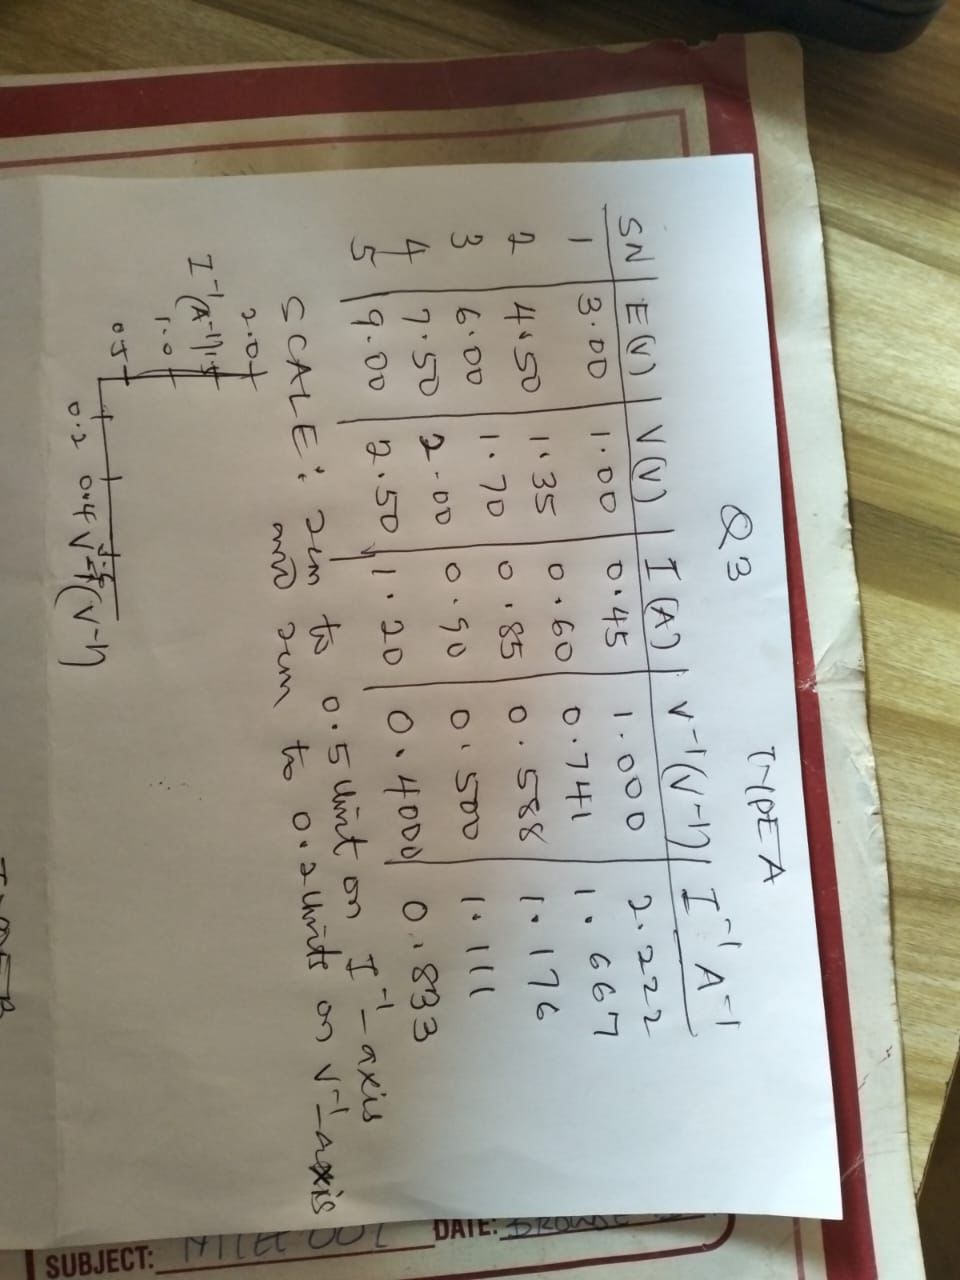 Q3 TYPE A
SN E(V) V(V) I(A) V⁻¹(V⁻¹) I⁻¹ A⁻¹
1 3.00 1.00 0.45 1.000 2.222
2 4.50 1.35 0.60 0.741 1.667
3 6.00 1.70 0.85 0.588 1.176
4 7.50 2.00 0.90 0.500 1.111
5 9.00 2.50 1.20 0.4000 0.833
SCALE: 2cm to 0.5 Unit on I⁻¹-axis
and 2cm to 0.2 Units on V⁻¹-axis
2.0
1.5
I⁻¹(A⁻¹)
1.0
0.5
0.2 0.4 V⁻¹(V⁻¹)
SUBJECT: DATE: